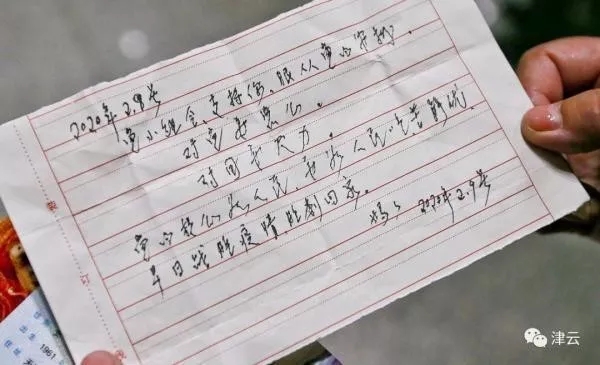 2020年2.9号
党小组会支持你、服从党的安排.
对党要忠心.
对国要尽力.
党的核心为人民、要为人民吃苦
早日战胜疫情胜利回家.
妈妈 2020年2.9号
1961
津云